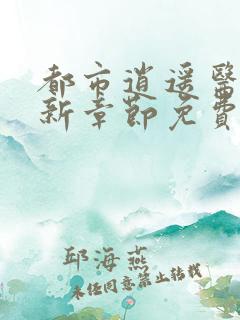 都市逍遥醫
新章節免費
邱海燕
未经同意禁止转载